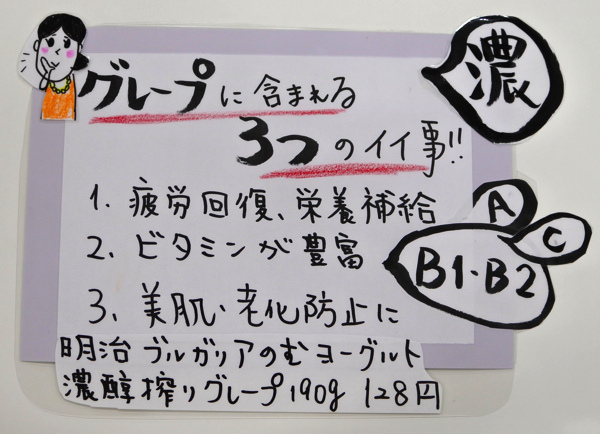 濃
グレープに含まれる
3つのイイ事!!
1. 疲労回復、栄養補給
2. ビタミンが豊富
A
C
B1・B2
3. 美肌・老化防止に
明治 ブルガリアのむヨーグルト
濃醇搾りグレープ190g 128円